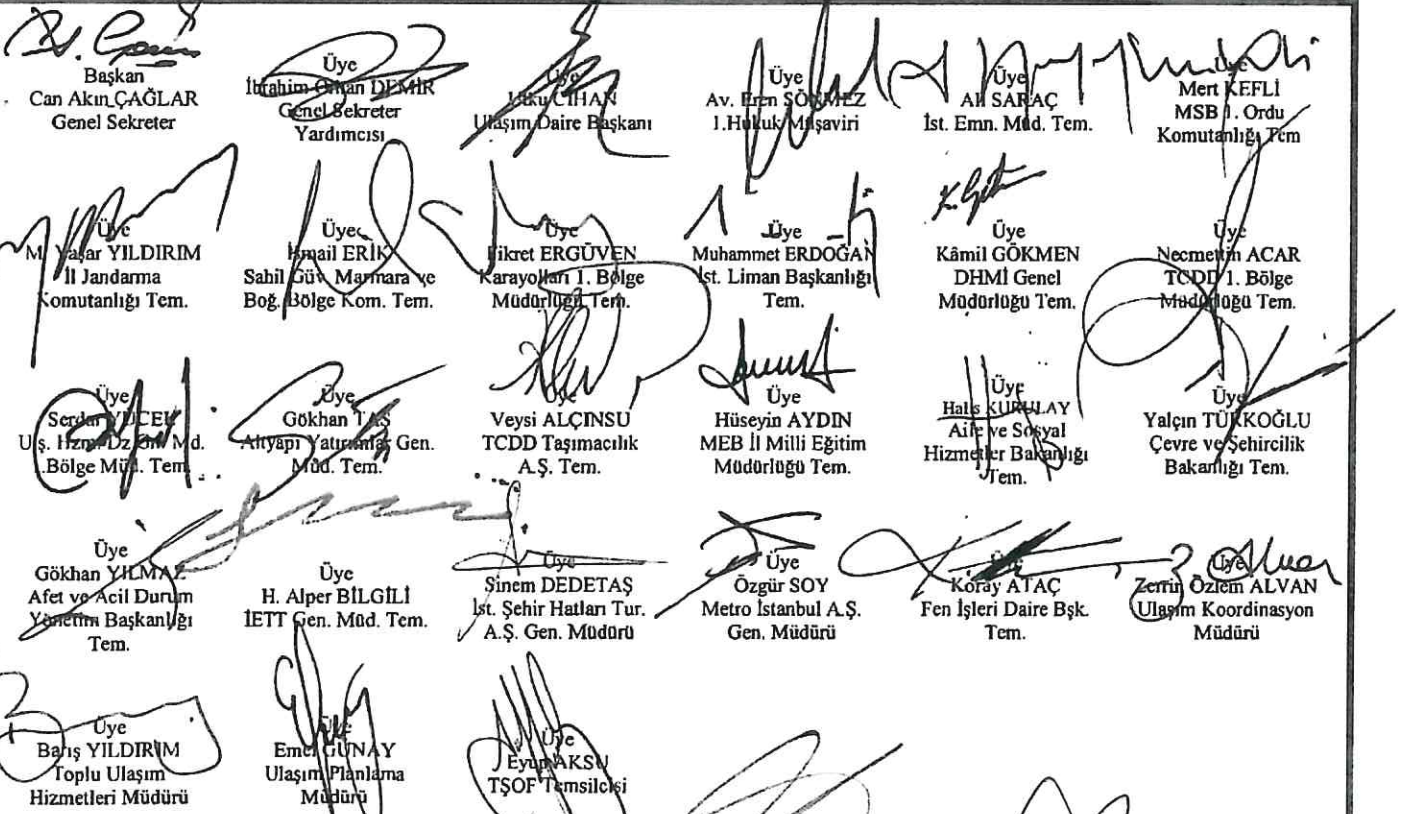 Başkan
Can Akın ÇAĞLAR
Genel Sekreter
Üye
İbrahim Orhan DEMİR
Genel Sekreter
Yardımcısı
Üye
Utku CİHAN
Ulaşım Daire Başkanı
Üye
Av. Eren SÖNMEZ
1.Hukuk Müşaviri
Üye
Ali SARAÇ
İst. Emn. Müd. Tem.
Üye
Mert KEFLİ
MSB 1. Ordu
Komutanlığı Tem
Üye
M. Yaşar YILDIRIM
İl Jandarma
Komutanlığı Tem.
Üye
İsmail ERİK
Sahil Güv. Marmara ve
Boğ. Bölge Kom. Tem.
Üye
Fikret ERGÜVEN
Karayolları 1. Bölge
Müdürlüğü Tem.
Üye
Muhammet ERDOĞAN
İst. Liman Başkanlığı
Tem.
Üye
Kâmil GÖKMEN
DHMİ Genel
Müdürlüğü Tem.
Üye
Necmettin ACAR
TCDD 1. Bölge
Müdürlüğü Tem.
Üye
Serdar YÜCEL
Ulş. Hzm. Dz. Gn. Md.
Bölge Müd. Tem.
Üye
Gökhan TAŞ
Altyapı Yatırımlar Gen.
Müd. Tem.
Üye
Veysi ALÇINSU
TCDD Taşımacılık
A.Ş. Tem.
Üye
Hüseyin AYDIN
MEB İl Milli Eğitim
Müdürlüğü Tem.
Üye
Halis KURULAY
Aile ve Sosyal
Hizmetler Bakanlığı
Tem.
Üye
Yalçın TÜRKOĞLU
Çevre ve Şehircilik
Bakanlığı Tem.
Üye
Gökhan YILMAZ
Afet ve Acil Durum
Yönetim Başkanlığı
Tem.
Üye
H. Alper BİLGİLİ
İETT Gen. Müd. Tem.
Üye
Sinem DEDETAŞ
İst. Şehir Hatları Tur.
A.Ş. Gen. Müdürü
Üye
Özgür SOY
Metro İstanbul A.Ş.
Gen. Müdürü
Üye
Koray ATAÇ
Fen İşleri Daire Bşk.
Tem.
Üye
Zerrin Özlem ALVAN
Ulaşım Koordinasyon
Müdürü
Üye
Barış YILDIRIM
Toplu Ulaşım
Hizmetleri Müdürü
Üye
Emel GÜNAY
Ulaşım Planlama
Müdürü
Üye
Eyüp AKSU
TŞOF Temsilcisi